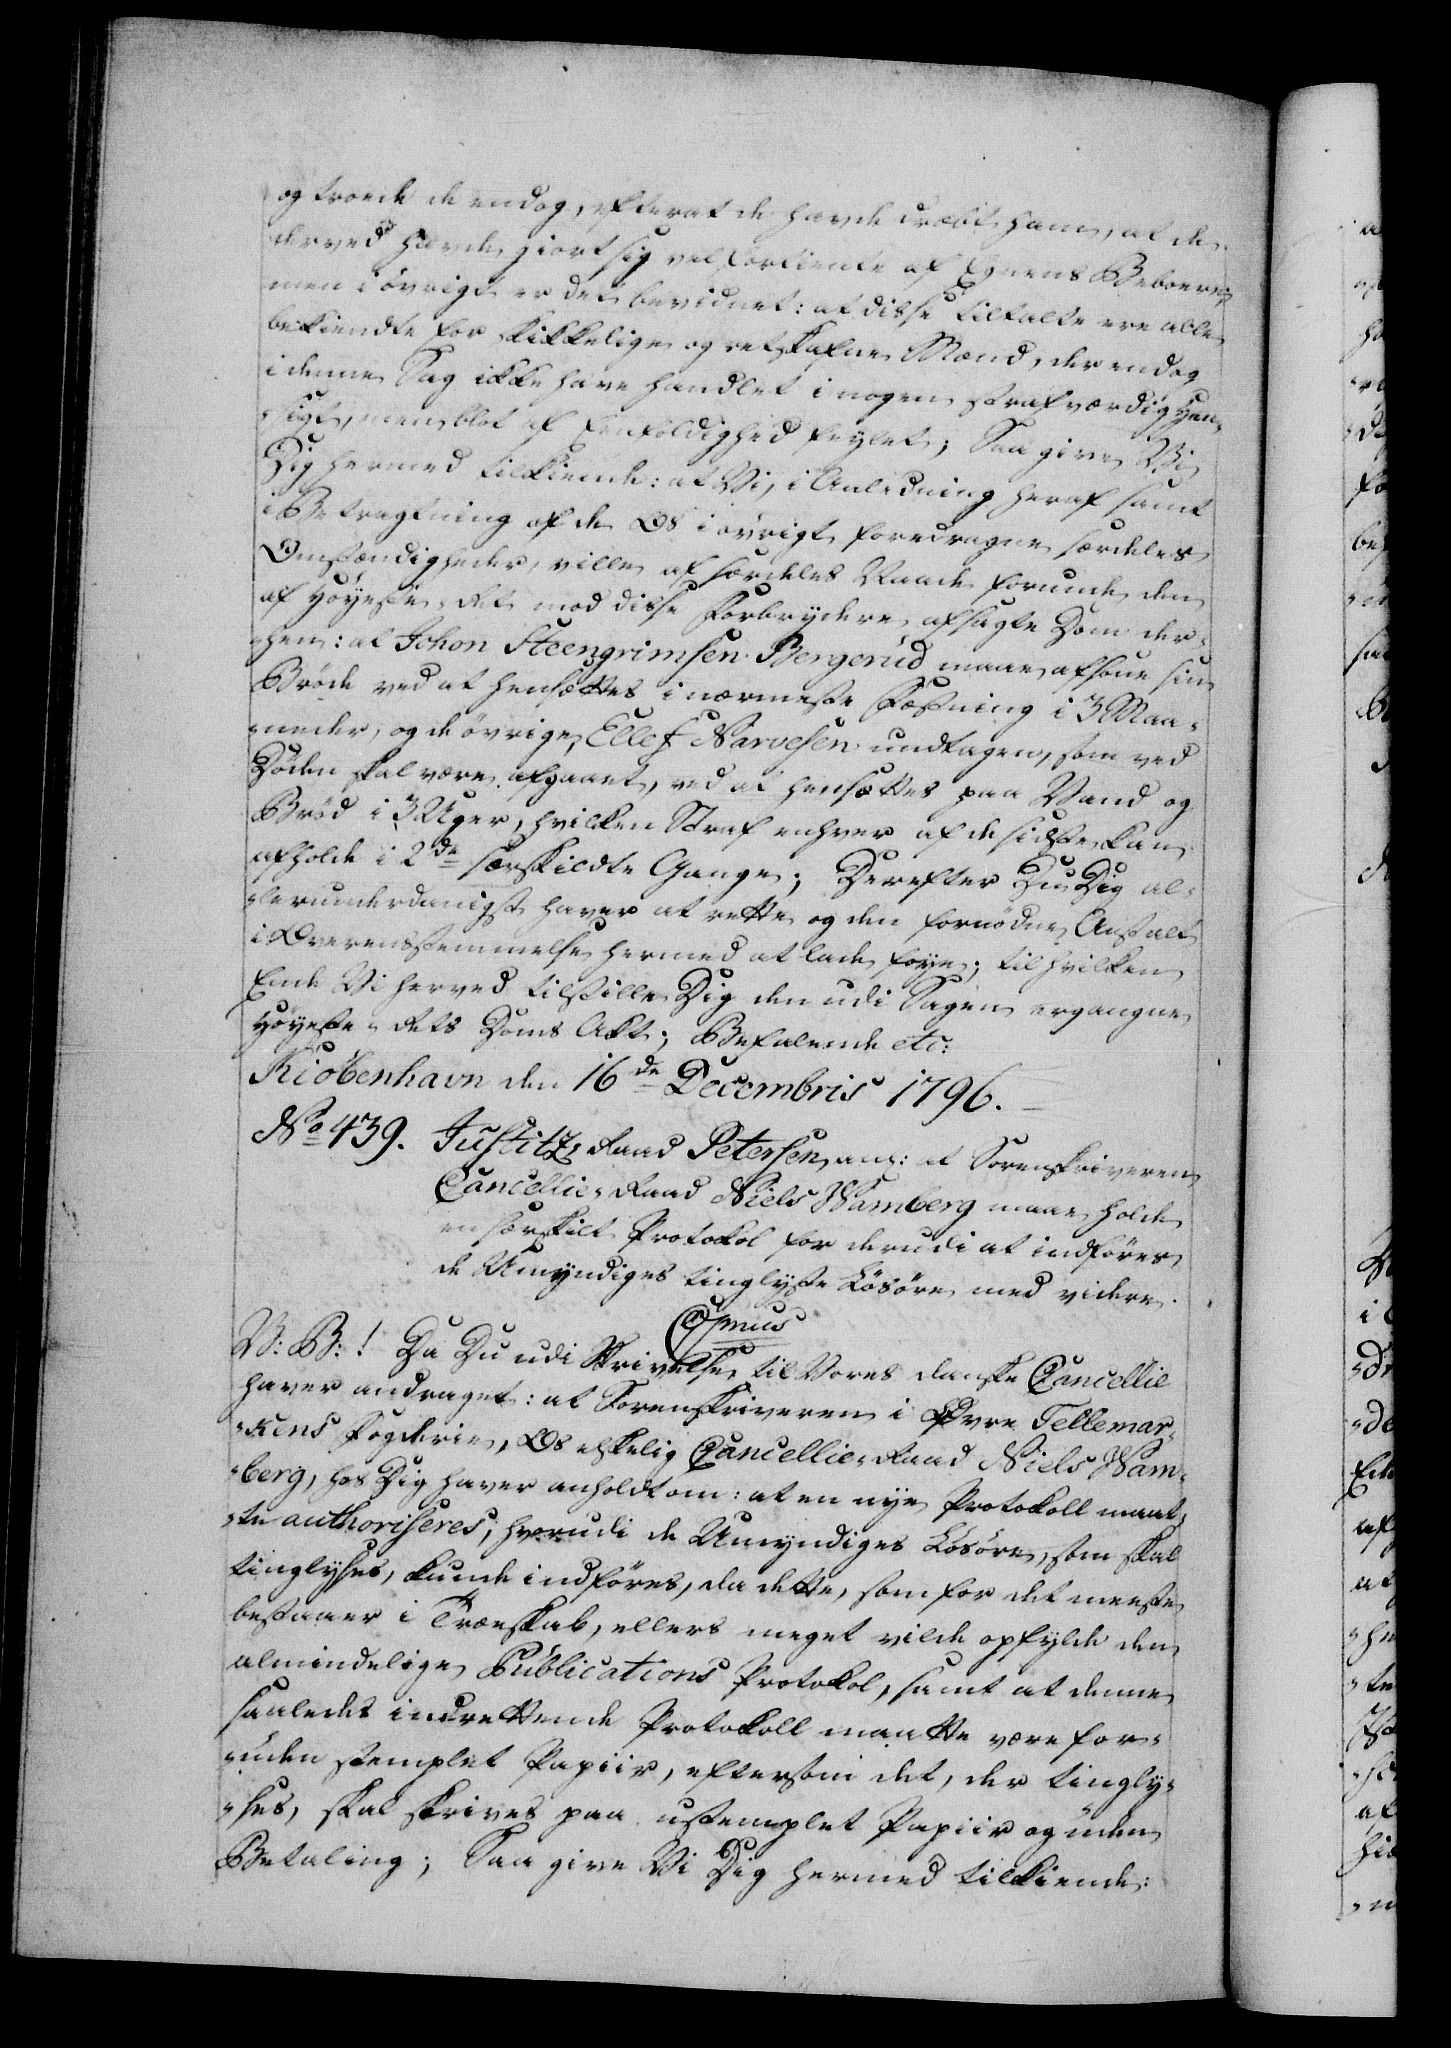 og troede de endog, efterat de havde dræbt ham, at de
derved havde giort sig vel fortiente af Egnens Beboere;
men i øvrigt er det bevidnet: at disse Tiltalte ere alle
bekiendte for skikkelige og retskafne Mænd, der endog
i denne Sag ikke have handlet i nogen strafværdig Hen-
-sigt, men blot af Eenfoldighed feylet; Saa give Vi
Dig hermed tilkiende: at Vi, i Anledning heraf samt
i Betragtning af de Os i øvrigt foredragne særdeles
Omstændigheder, ville af særdeles Naade forunde den
af Høyeste-Ret mod disse Forbrydere afsagte Dom der-
-hen: at Johon Steengrimsen Bergerud maae afsone sin
Brøde ved at hensættes i nærmeste Fæstning i 3 Maa-
-neder, og de øvrige, Ellef Narvesen undtagen, som ved
Døden skal være afgaaet, ved at hensættes paa Vand og
Brød i 3 Uger, hvilken Straf enhver af de sidste kan
afholde i 2de særskildte Gange; Derefter Du Dig al-
-lerunderdanigst haver at rette og den fornødne Anstalt
i Overensstemmelse hermed at lade føye; til hvilken
Ende Vi herved tilstille Dig den udi Sagen ergangne
Høyeste-Rets Doms Akt; Befalende etc:
Kiøbenhavn den 16de Decembris 1796.
No 439. Justitz-Raad Petersen, ang: at Sorenskriveren
Cancellie-Raad Niels Wamberg maae holde
en særskilt Protokol for derudi at indføres
de Umyndiges tinglyste Løsøre med videre.
C7mus
V: B:! Da Du udi Skrivelse til Vores danske Cancellie
haver andraget: at Sorenskriveren i Øvre Tellemar-
-kens Fogderie, Os elskelig Cancellie-Raad Niels Wam-
-berg, hos Dig haver anholdt om: at en nye Protokoll maat-
-te authoriseres, hvorudi de Umyndiges Løsøre, som skal
tinglyses, kunde indføres, da dette, som for det meeste
bestaaer i Træeskab, ellers meget vilde opfylde den
almindelige Publications Protokol, samt at denne
saaledes indrettende Protokoll maatte være for-
-uden stemplet Papiir, eftersom det, der tingly-
-ses, skal skrives paa ustemplet Papiir og uden
Betaling; Saa give Vi Dig hermed tilkiende: